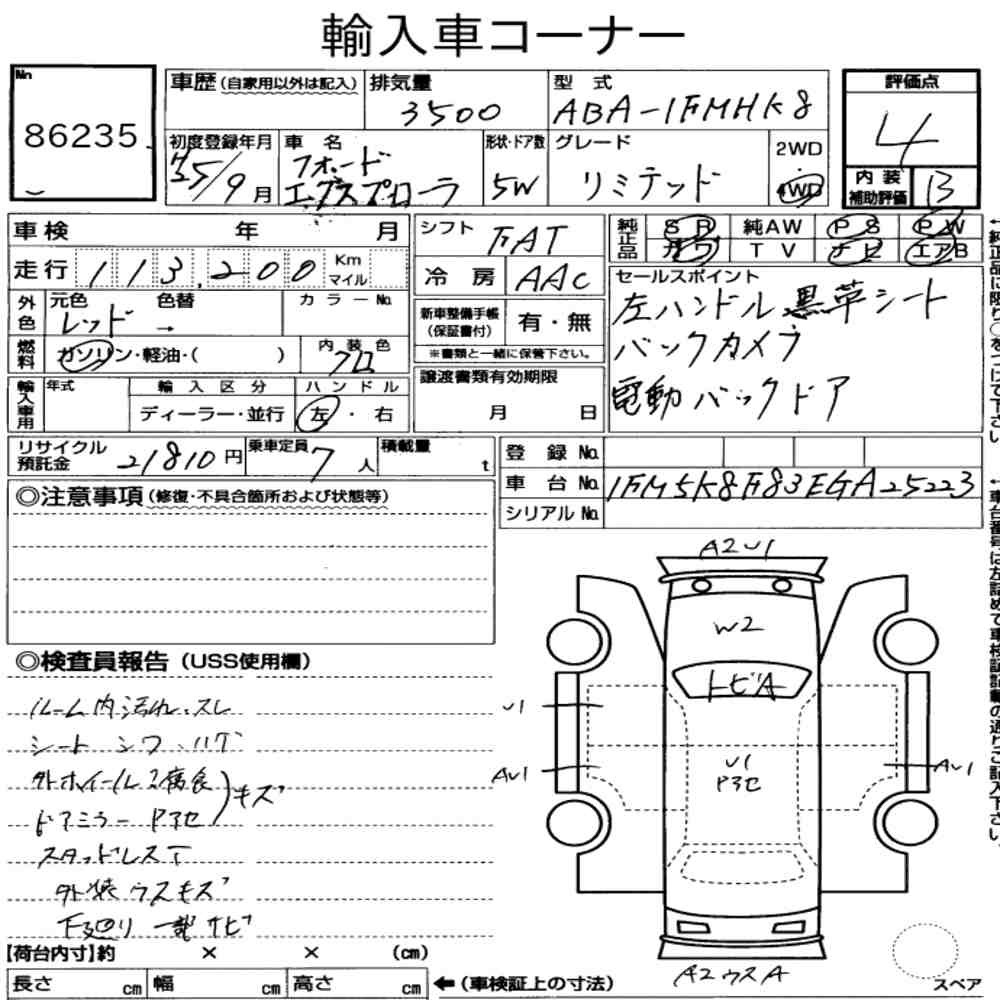 輸入車コーナー
No
86235
車歴 (自家用以外は記入)
排気量
3500
型式
ABA-1FMHK8
評価点
4
初度登録年月
25/9月
車名
フォード
エクスプローラ
形状・ドア数
5W
グレード
リミテッド
2WD
4WD
内装
補助評価
B
車検 年 月
走行 113,200 Km
マイル
シフト
FAT
冷房
AAC
純正品
SR 純AW PS PW
カワ TV ナビ エアB
外色
元色 色替 カラーNo.
レッド →
燃料
ガソリン・軽油・( )
内装色
クロ
新車整備手帳
(保証書付)
有・無
※書類と一緒に保管下さい。
セールスポイント
左ハンドル 黒革シート
バックカメラ
電動バックドア
輸入車用
年式
輸入区分
ディーラー・並行
ハンドル
左・右
譲渡書類有効期限
月 日
リサイクル
預託金
21810円
乗車定員
7人
積載量
t
登録No.
車台No.
1FM5K8F83EGA25223
シリアルNo.
◎注意事項(修復・不具合箇所および状態等)
◎検査員報告(USS使用欄)
ルーム内汚れ、スレ
シート シワ、ハゲ
外ホイール腐食
ドアミラー P3セ
キズ
スタッドレスT
外装ウスキズ
下廻り 一部サビ
A2U1
W2
トビA
U1
AU1
U1
P3セ
AU1
A2ウスA
スペア
【荷台内寸】約 × × (cm)
長さ cm 幅 cm 高さ cm
←(車検証上の寸法)